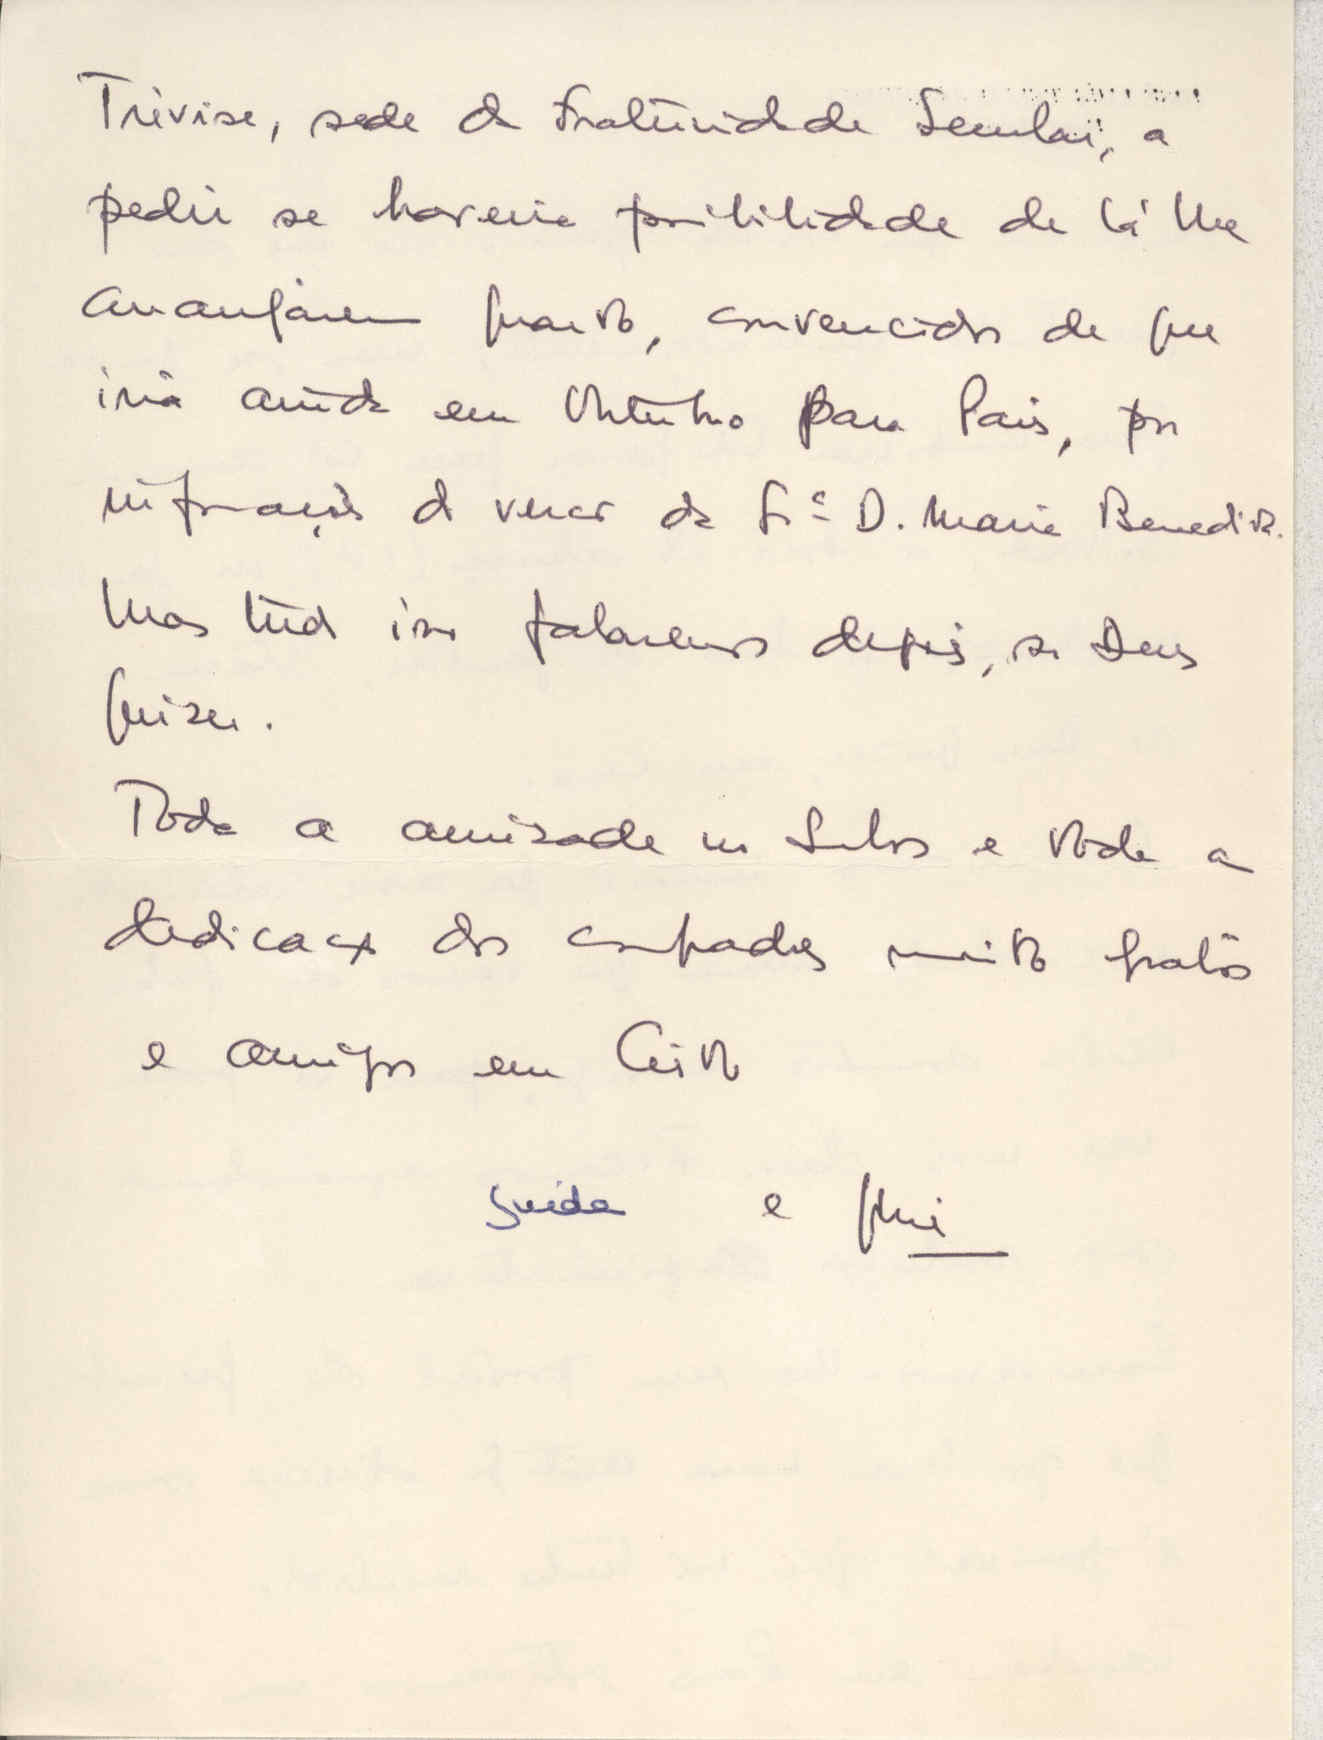 Trévise, sede da Fraternidade Secular, a
pedir se haveria possibilidade de lá lhe
arranjarem quarto, convencidos de que
iria ainda em Outubro para Paris, por
informação do vosso da Srª D. Maria Benedita.
Mas tudo isso falaremos depois, se Deus
quiser.
Toda a amizade e toda a
dedicação dos compadres muito gratos
e amigos em Cristo
Guida e